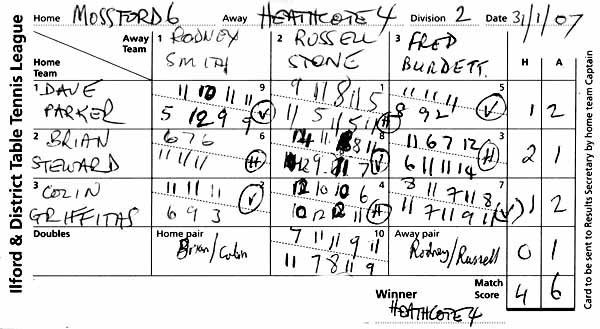 Ilford & District Table Tennis League
Home MOSSFORD 6 Away HEATHCOTE 4 Division 2 Date 31/1/07
Away Team 1 RODNEY SMITH 2 RUSSELL STONE 3 FRED BURDETT H A
Home Team
1 DAVE PARKER
9
11 10 11 11
5 12 9 9 V
1
9 11 8 11 5
11 5 11 5 11 H
5
11 11 11
8 9 2 V
1 2
2 BRIAN STEWARD
6
6 7 6
11 11 11 H
8
11 8 11
9 7 V
3
11 6 7 12
6 11 11 14 H
2 1
3 COLIN GRIFFITHS
2
11 11 11
6 9 3 V
4
12 10 10 6
10 12 12 11 H
7
8 11 7 11 8
11 7 11 9 11 V
1 2
Doubles Home pair Brian/Colin
10
9 11 11 9 11
11 7 8 11 9
Away pair Rodney/Russell
0 1
Winner HEATHCOTE 4
Match Score 4 6
Card to be sent to Results Secretary by home team Captain